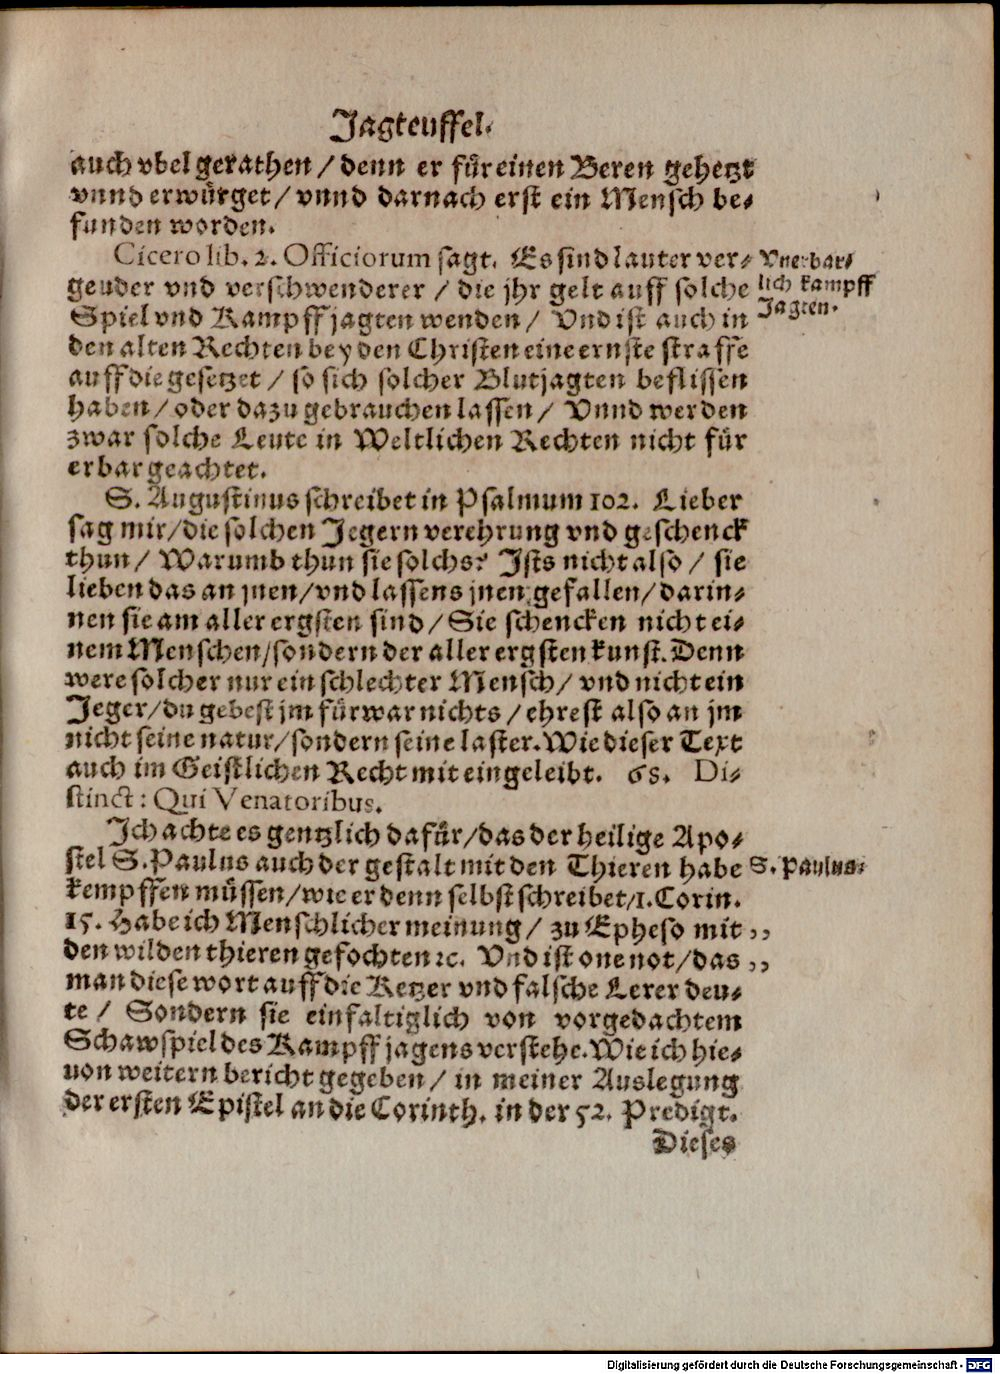 Jagteuffel.
auch vbel gerathen / denn er für einen Beren gehetzt
vnnd erwürget / vnnd darnach erst ein Mensch be-
funden worden.
Cicero lib. 2. Officiorum sagt. Es sind lauter ver-
geuder vnd verschwenderer / die jhr gelt auff solche
Spiel vnd Kampff jagten wenden / Vnd ist auch in
den alten Rechten bey den Christen eine ernste straffe
auff die gesetzet / so sich solcher Blutjagten beflissen
haben / oder dazu gebrauchen lassen / Vnnd werden
zwar solche Leute in Weltlichen Rechten nicht für
erbar geachtet.
Vnerbar-
lich kampff
Jagten.
S. Augustinus schreibet in Psalmum 102. Lieber
sag mir / die solchen Jegern verehrung vnd geschenck
thun / Warumb thun sie solchs? Ists nicht also / sie
lieben das an jnen / vnd lassens jnen gefallen / darin-
nen sie am aller ergsten sind / Sie schencken nicht ei-
nem Menschen / sondern der aller ergsten kunst. Denn
were solcher nur ein schlechter Mensch / vnd nicht ein
Jeger / du gebest jm fürwar nichts / ehrest also an jm
nicht seine natur / sondern seine laster. Wie dieser Text
auch im Geistlichen Recht mit eingeleibt. 68. Di-
stinct: Qui Venatoribus.
Ich achte es gentzlich dafür / das der heilige Apo-
stel S. Paulus auch der gestalt mit den Thieren habe
kempffen müssen / wie er denn selbst schreibet / 1. Corin.
15. Habe ich Menschlicher meinung / zu Epheso mit ,,
den wilden thieren gefochten ꝛc. Vnd ist one not / das ,,
man diese wort auff die Ketzer vnd falsche Lerer deu-
te / Sondern sie einfaltiglich von vorgedachtem
Schawspiel des Kampff jagens verstehe. Wie ich hie-
uon weitern bericht gegeben / in meiner Auslegung
der ersten Epistel an die Corinth. in der 52. Predigt.
S. Paulus.
Dieses
Digitalisierung gefördert durch die Deutsche Forschungsgemeinschaft - DFG